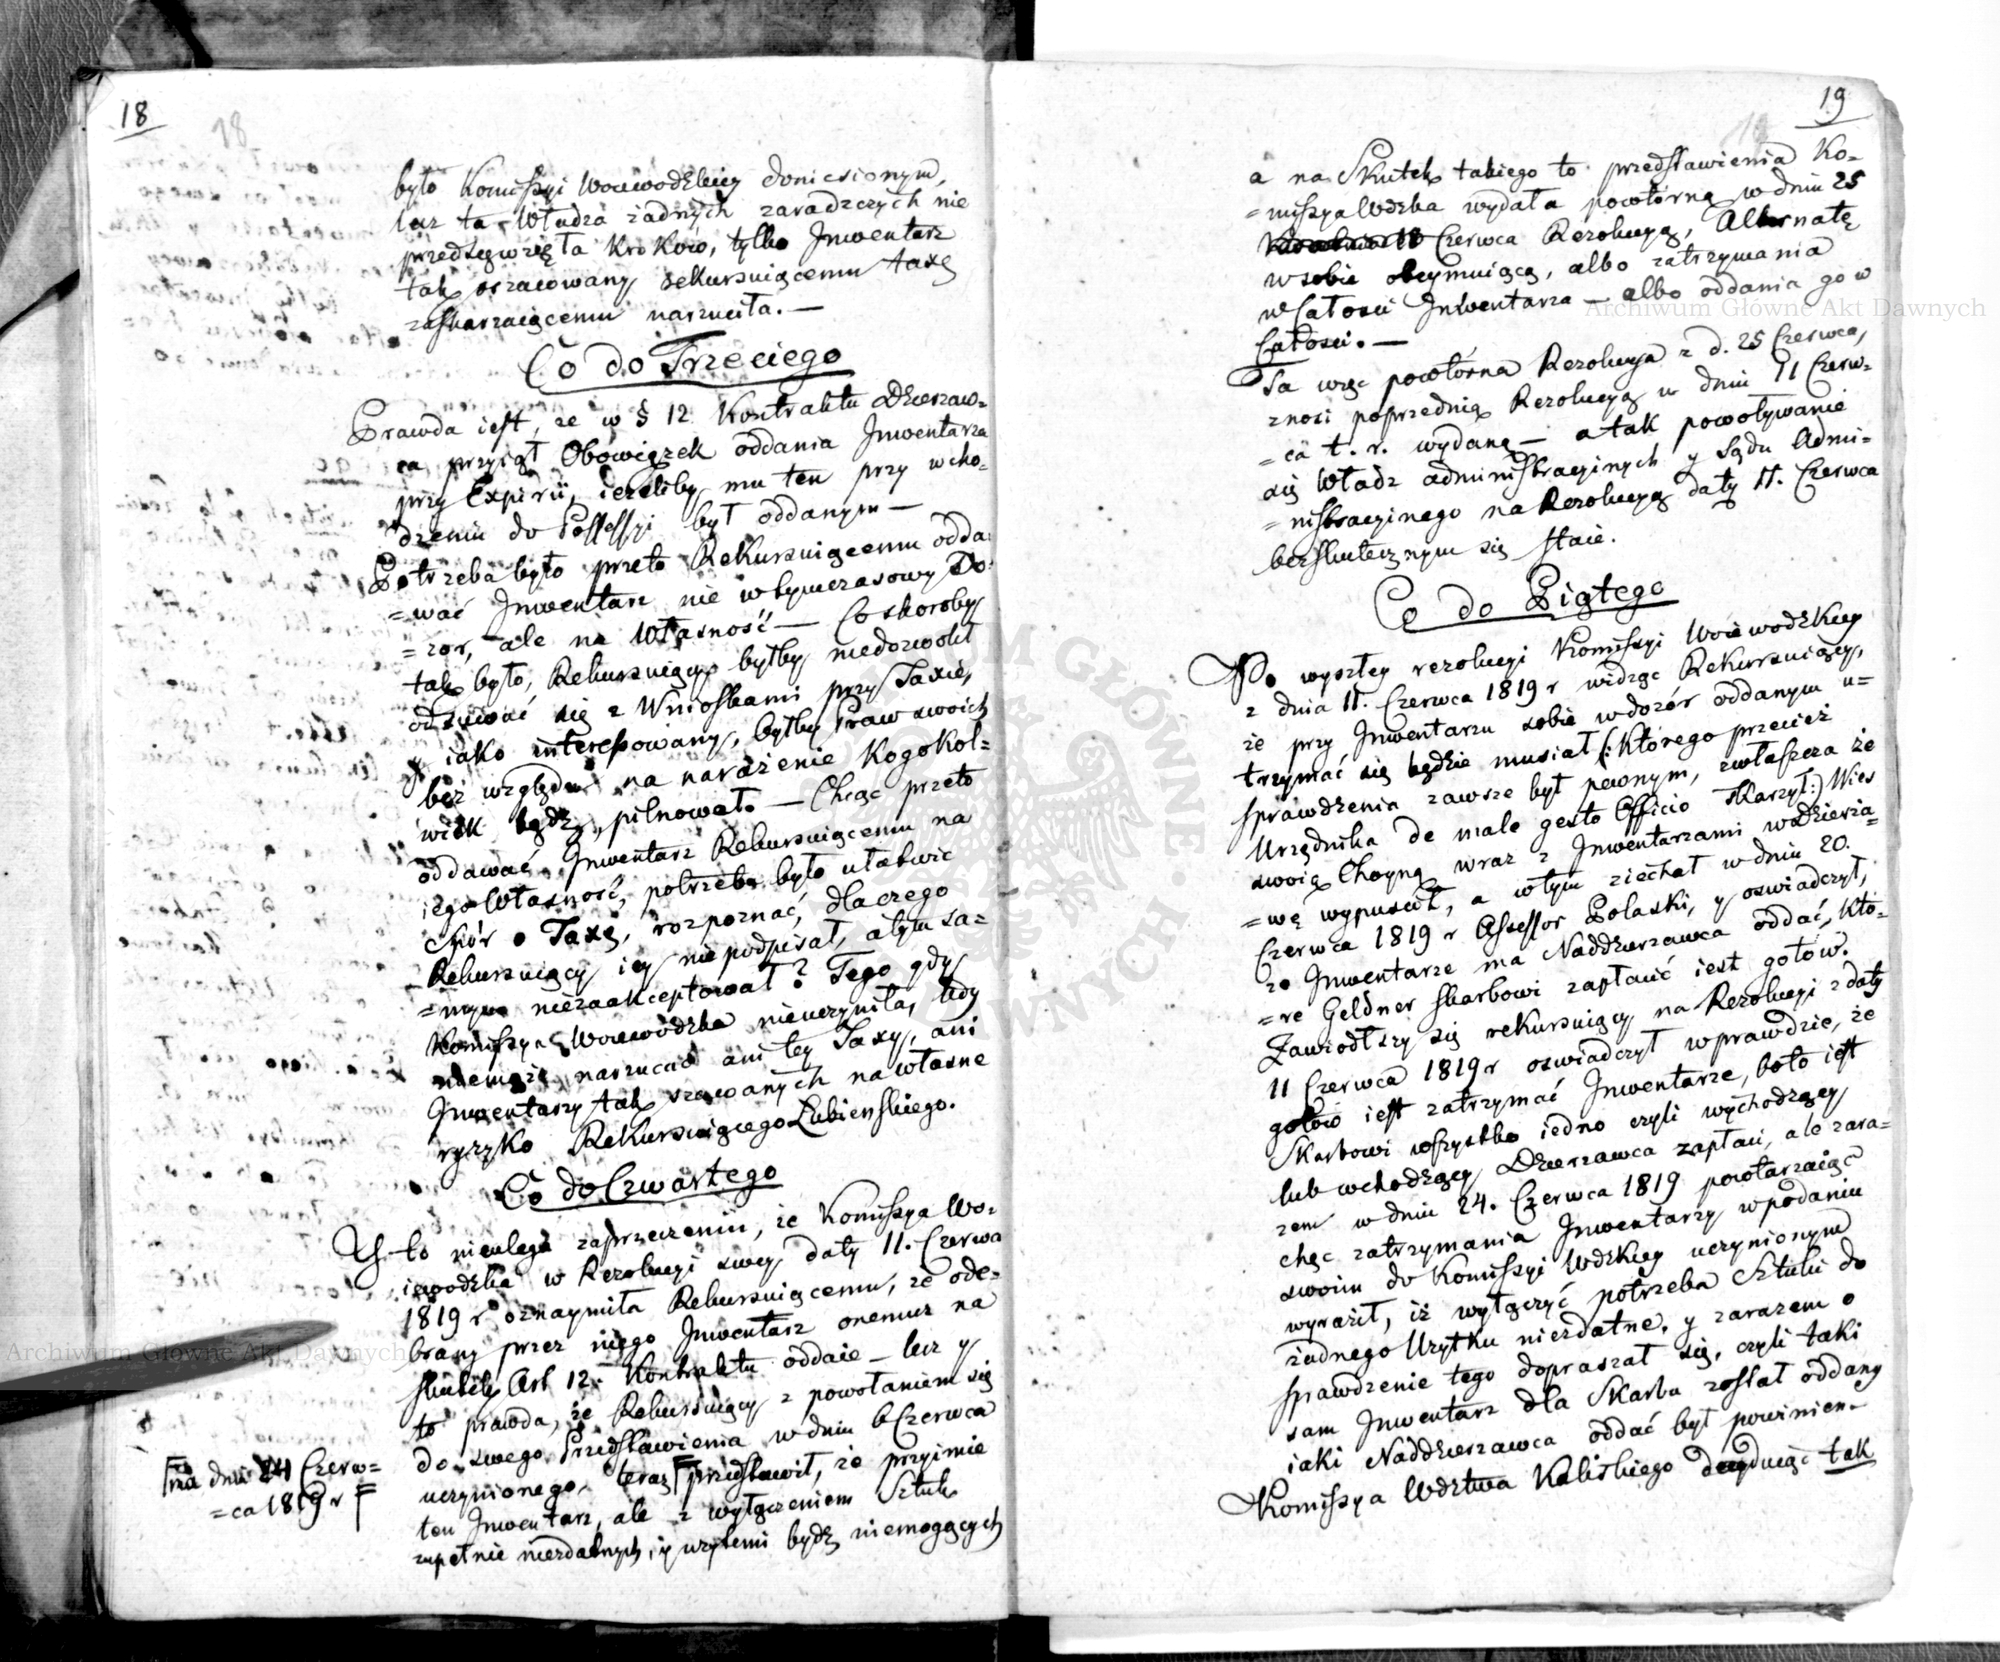 18
18
było Komissyi Woiewodzkiey doniesionym,
lecz ta Władza żadnych zaradzczych nie
przedsięwzięła Kroków, tylko Inwentarz
tak oszacowany rekursuiącemu taxę
zaskarzaiącemu narzuciła. —
Co do Trzeciego
Prawda iest, że w § 12 Kontraktu Dzierzaw-
ca przyiął Obowiązek oddania Inwentarza
przy Expirii, ieżeliby mu ten przy wcho-
dzeniu do Possessyi był oddanym —
Potrzeba było przeto Rekursuiącemu odda-
=wać Inwentarz nie w tymczasowy Do-
=zor, ale na Własność — Co skoroby
tak było, Rekursuiący byłby niedozwolił
odzywać się z Wnioskami przy Taxie,
y iako interessowany, byłby Praw swoich
bez względu na narażenie Kogokol-
wiek bądz, pilnował. — Chcąc przeto
oddawać Inwentarz Rekursuiącemu na
iego Własność, potrzeba było ułatwić
Spór o Taxę, rozpoznać, dlaczego
Rekursuiący iey nie podpisał, a tym sa-
=mym niezaakceptował? Tego gdy
Komissya Woiewodzka nieuczyniła, tedy
niemoże narzucać ani tey Taxy, ani
Inwentarzy tak szacowanych na własne
ryzyko Rekursuiącego Łubieńskiego.
Co do Czwartego
Y to nieulega zaprzeczeniu, że Komissya Wo-
iewodzka w Rezolucyi swey daty 11. Czerwca
1819 r oznaymiła Rekursuiącemu, że ode-
brany przez niego Inwentarz onemuz na
skutek Art 12. Kontraktu oddaie — lecz y
to prawda, że Rekursuiący z powołaniem się
do swego Przedstawienia w dniu 6 Czerwca
uczynionego, teraz przedstawił, że przyimie
ten Inwentarz, ale z wyłączeniem Sztuk
zupełnie niezdatnych, y użytemi bydź niemogących
na dniu 24 Czerw=
=ca 1819 r
19
19
a na Skutek takiego to przedstawienia Ko-
=missya Wdzka wydała powtórną w dniu 25
Czerwca Rezolucyą, Alternatę
w sobie obeymuiącą, albo zatrzymania
w Całości Inwentarza — albo oddania go w
Całości. —
Ta więc powtórna Rezolucya z d. 25 Czerwca,
znosi poprzednią Rezolucyą w dniu 11 Czerw-
=ca t. r. wydaną — a tak powoływanie
się Władz administracyinych y Sądu Admi=
=nistracyinego na Rezolucyą daty 11. Czerwca
bezskutecznym się staie.
Co do Piątego
Po wyszłey rezolucyi Komissyi Woiewodzkiey
z dnia 11. Czerwca 1819 r widząc Rekursuiący,
że przy Inwentarzu sobie w dozór oddanym u=
trzymać się będzie musiał /: Którego przecież
sprawdzenia zawsze był pewnym, zwłaszcza że
Urzędnika de male gesto Officio skarzył :/ Wieś
swoią Choyną wraz z Inwentarzami w dzierża=
=wę wypuścił, a w tym ziechał w dniu 20.
Czerwca 1819 r Assessor Polaski, y oswiadczył,
że Inwentarze ma Naddzierzawca oddać, Któ-
=re Geldner Skarbowi zapłacić iest gotów.
Zawiodłszy się rekursuiący na Rezolucyi z daty
11 Czerwca 1819 r oswiadczył wprawdzie, że
gotów iest zatrzymać Inwentarze, bo to iest
Skarbowi wszystko iedno czyli wychodzący
lub wchodzący Dzierzawca zapłaci, ale zara=
zem w dniu 24. Czerwca 1819 powtarzaiąc
chęc zatrzymania Inwentarzy w podaniu
swoim do Komissyi Wdzkiey uczynionym
wyraził, iż wyłączyć potrzeba Sztuki do
żadnego Użytku niezdatne, y zarazem o
sprawdzenie tego dopraszał się, czyli taki
sam Inwentarz dla Skarbu został oddany
iaki Naddzierzawca oddać był powinien.
Komissya Wdztwa Kaliskiego decyduiąc tak